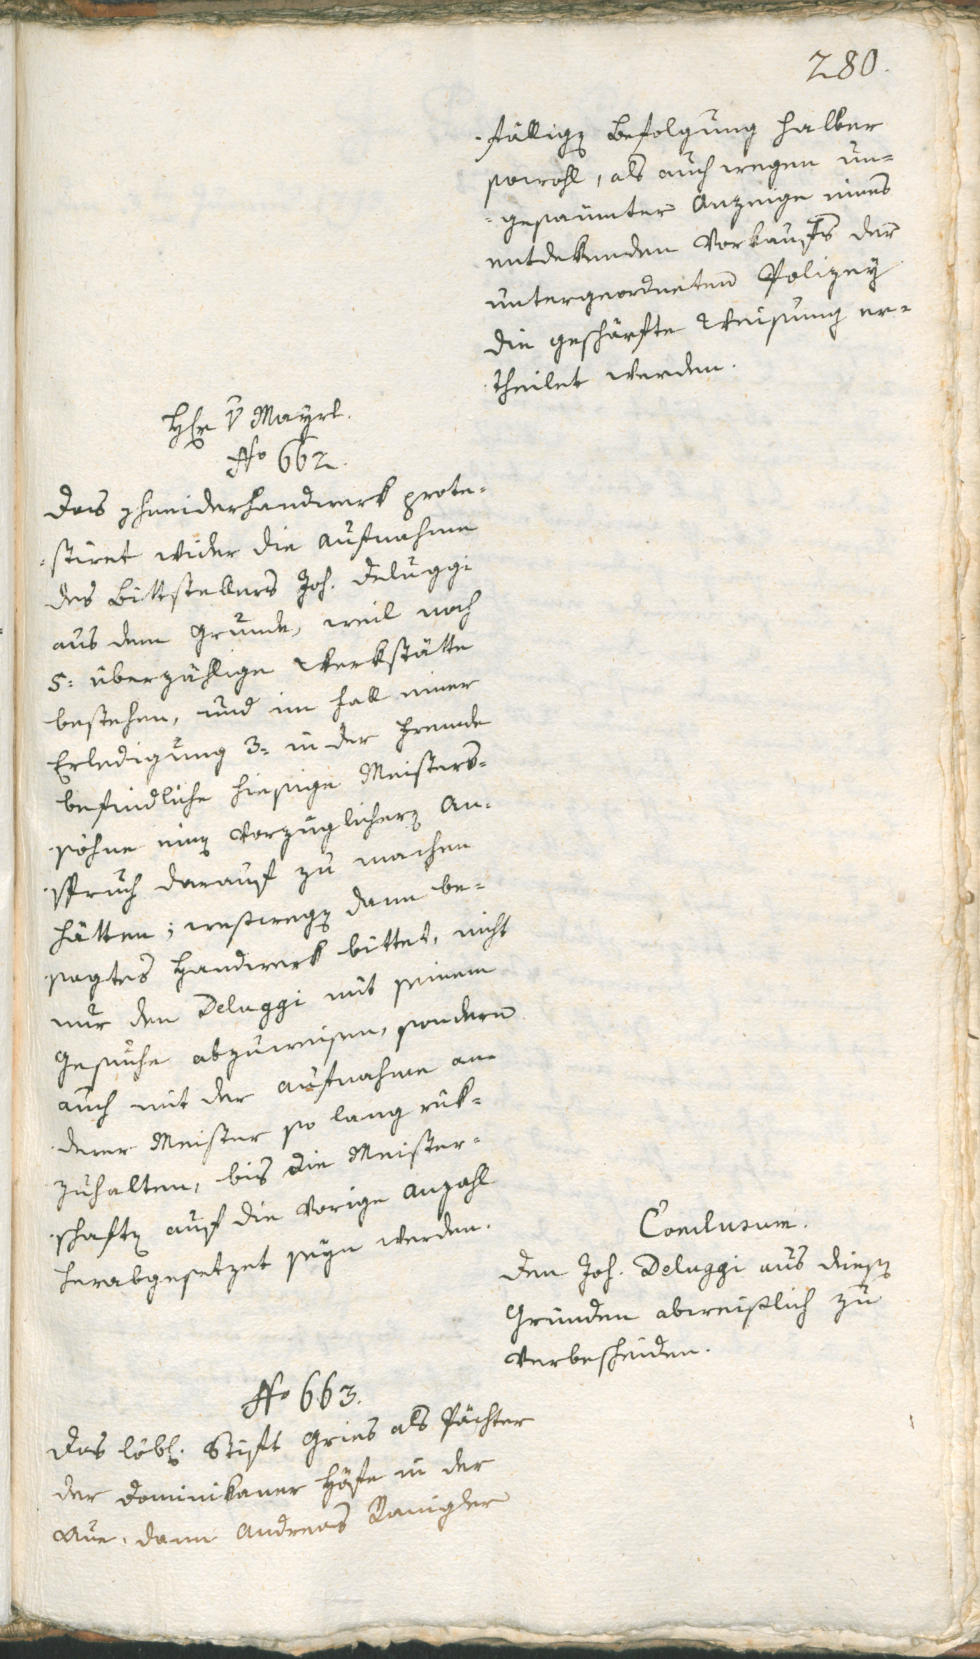 280.
fällig Befolgung halber
sowohl, als auch wegen un=
=gesaumter Anzeige eines
entdekenden Vorkaufs der
untergeordneten Polizey
die geschärfte Weisung er=
theilet werden.
Hr. v Mayrl.
No 662.
Das Schneiderhandwerk prote=
stiret wider die Aufnahme
des Bittstellers Joh. Deluggi
aus dem Grunde, weil noch
5: überzählige Werkstätte
bestehen, und im fall einer
Erledigung 3: in der Fremde
befindliche hiesige Meisters=
söhne einen vorzüglichern An=
spruch darauf zu machen
hätten; westwegen dann be=
sagtes Handwerk bittet, nicht
nur den Deluggi mit seinem
Gesuche abzuweisen, sondern
auch mit der Aufnahme an
derer Meister so lang ruk=
zuhalten, bis die Meister=
schaften auf die vorige Anzahl
herabgesetzet seyn werden.
Conclusum.
Den Joh. Deluggi aus diesen
Gründen abweislich zu
verbescheiden.
No 663.
Das löbl. Stift Gries als Pächter
der Dominikaner Höfe in der
Aue, dann Andreas Ranigler